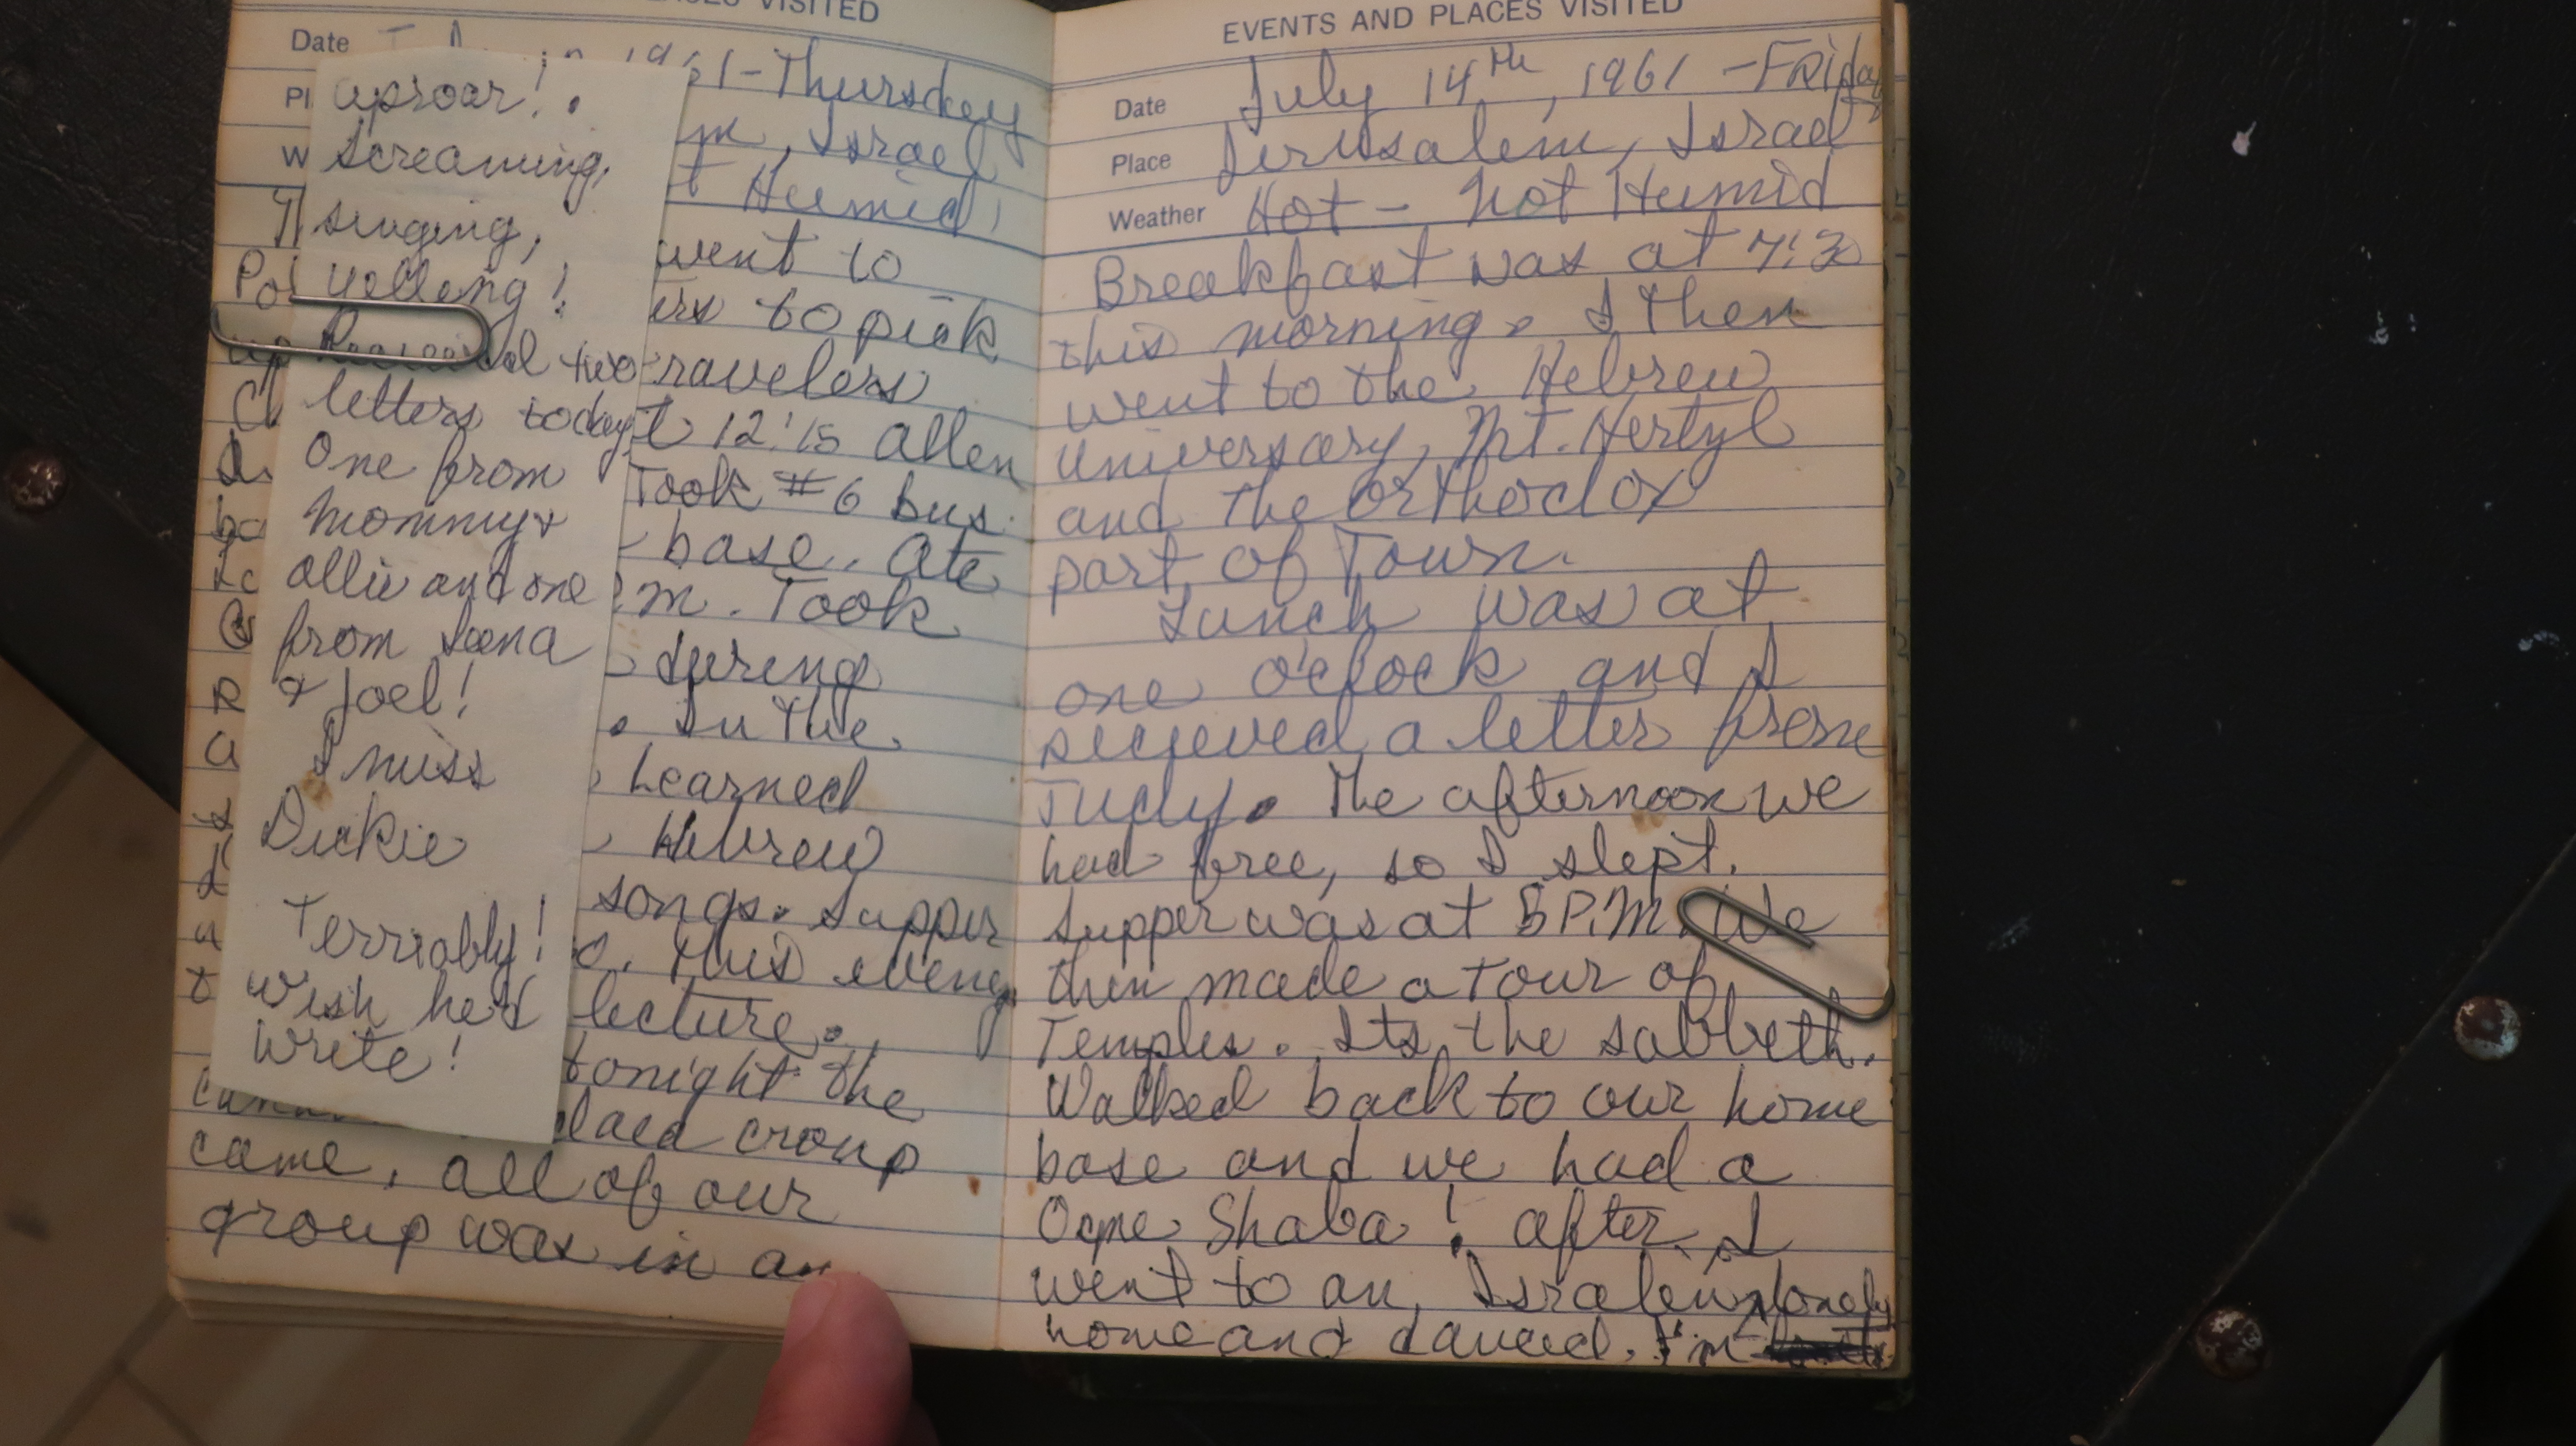 VISITED
Date
1961-Thursday
Pl
m, Israel
W
t Humid,
went to
Po
ers to pick
up
ravelers
Cl
t 12:15 Allen
Took #6 bus
ba
base. Ate
m. Took
during
R
. In the
a
, Learned
, Hebrew
songs. Supper
a
o. This evening
lecture.
tonight the
croup
came, all of our
group was in an
uproar!.
Screaming,
singing,
yelling!
Received two
letters today,
One from
Mommy &
Allie and one
from Leena
& Joel!
I miss
Dickie
Terriably!
Wish he'd
write!
EVENTS AND PLACES VISITED
Date July 14th, 1961 - Friday
Place Jerusalem, Israel
Weather Hot - Not Humid
Breakfast was at 7:30
this morning. I then
went to the Hebrew
Universary, Mt. Hertyl
and the orthodox
part of Town.
Lunch was at
one o'clock and I
recieved a letter from
Judy. The afternoon we
had free, so I slept.
Supper was at 5 P.M. We
then made a tour of
Temples. Its the sabbeth.
Walked back to our home
base and we had a
Ogne Shaba! after I
went to an Israleiw
home and danced. I'm lonely